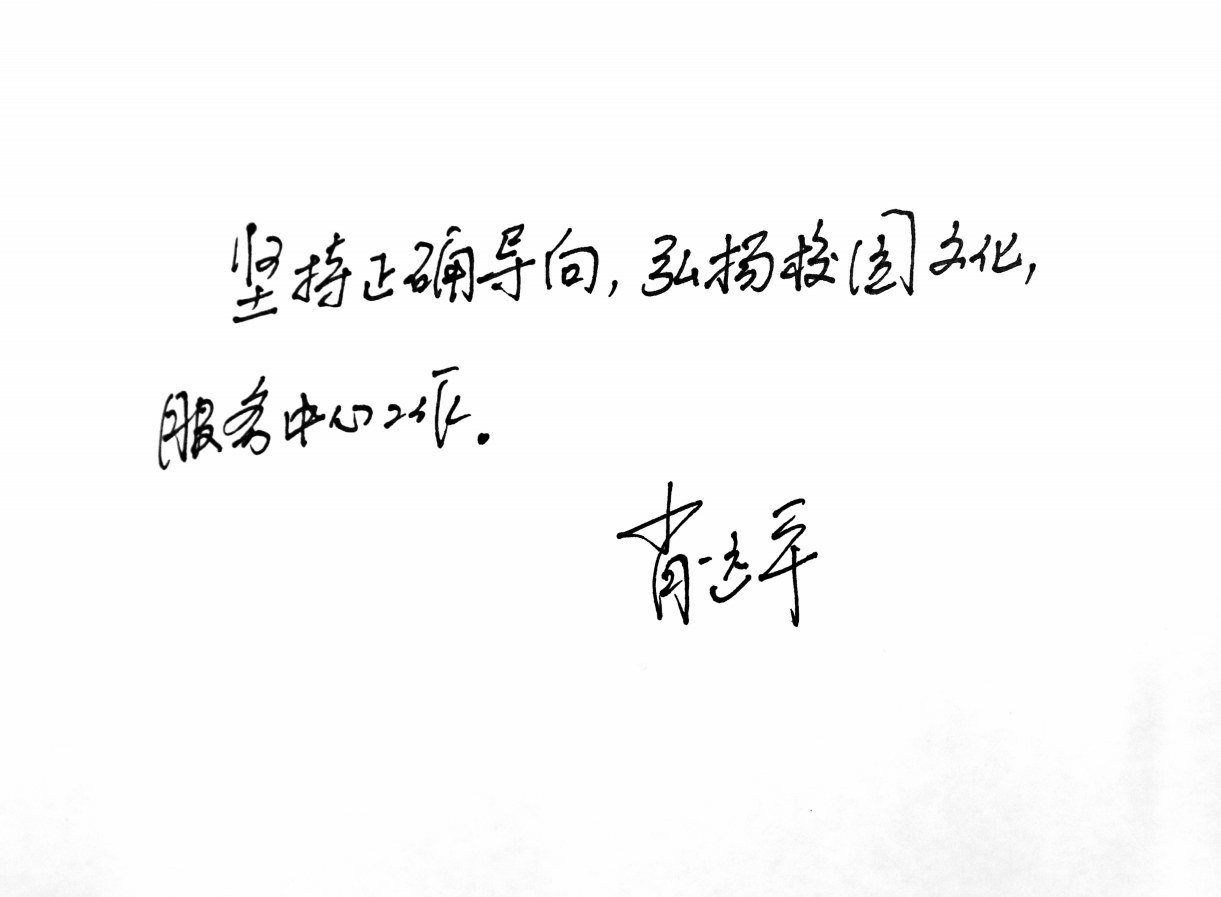 坚持正确导向,弘扬校园文化,
服务中心工作.
肖远平